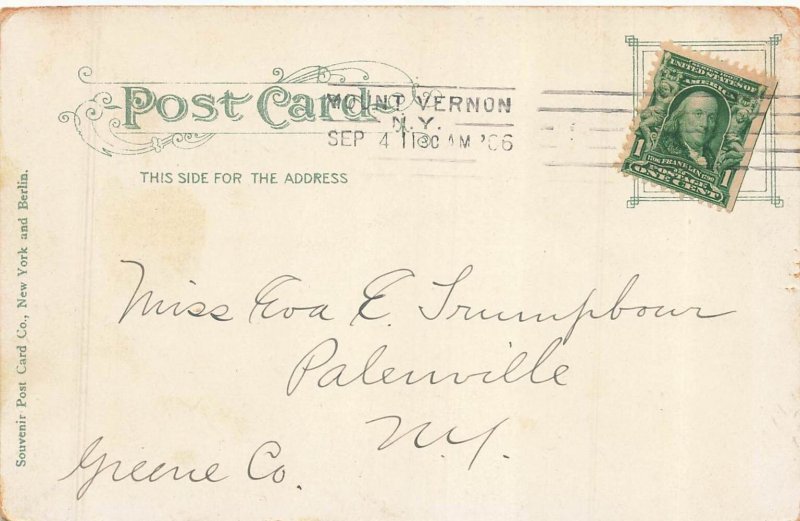 Post Card
MOUNT VERNON
N.Y.
SEP 4 11 30 AM '06
THIS SIDE FOR THE ADDRESS
UNITED STATES OF
AMERICA
FRANKLIN
POSTAGE
1 ONE CENT 1
Miss Eva E. Trumpbour
Palenville
N.Y.
Greene Co.
Souvenir Post Card Co., New York and Berlin.